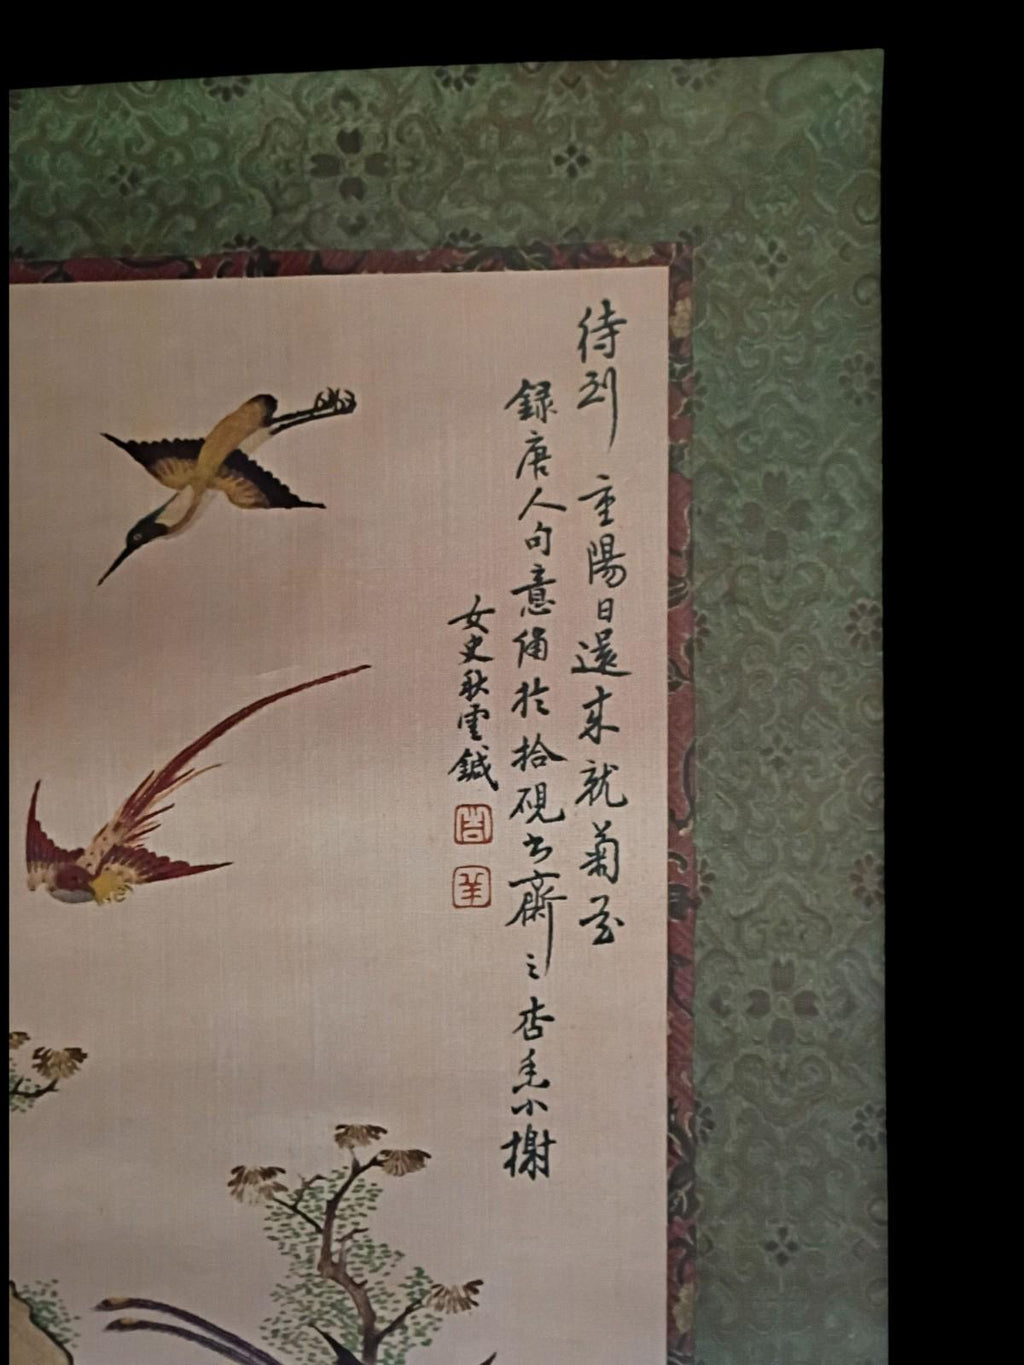 待到重陽日還来就菊花
録唐人句意绣於拾硯书齋之杏花小榭
女史秋雲鍼